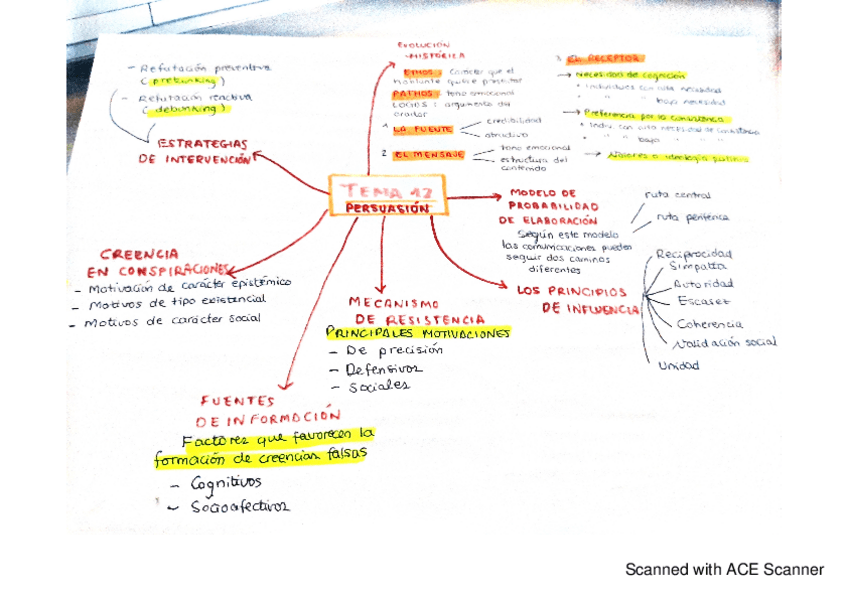 EVOLUCIÓN
HISTÓRICA
ETHOS: Carácter que el
hablante quiere proyectar
PATHOS: tono emocional
LOGOS: argumento del
orador
1. LA FUENTE
credibilidad
atractivo
2. EL MENSAJE
tono emocional
estructura del
contenido
3. EL RECEPTOR
→ Necesidad de cognición
• Individuos con alta necesidad
" " baja necesidad
→ Preferencia por la consistencia
• Indiv. con alta necesidad de consistencia
" " baja " "
→ Valores o ideología
- Refutación preventiva
(prebunking)
- Refutación reactiva
(debunking)
ESTRATEGIAS
DE INTERVENCIÓN
TEMA 12
PERSUASIÓN
MODELO DE
PROBABILIDAD
DE ELABORACIÓN
ruta central
ruta periférica
Según este modelo
las comunicaciones pueden
seguir dos caminos
diferentes
CREENCIA
EN CONSPIRACIONES
- Motivación de carácter epistémico
- Motivos de tipo existencial
- Motivos de carácter social
LOS PRINCIPIOS
DE INFLUENCIA
Reciprocidad
Simpatía
Autoridad
Escasez
Coherencia
Validación social
Unidad
MECANISMO
DE RESISTENCIA
PRINCIPALES MOTIVACIONES
- De precisión
- Defensivos
- Sociales
FUENTES
DE INFORMACIÓN
Factores que favorecen la
formación de creencias falsas
- Cognitivos
- Socioafectivos
Scanned with ACE Scanner